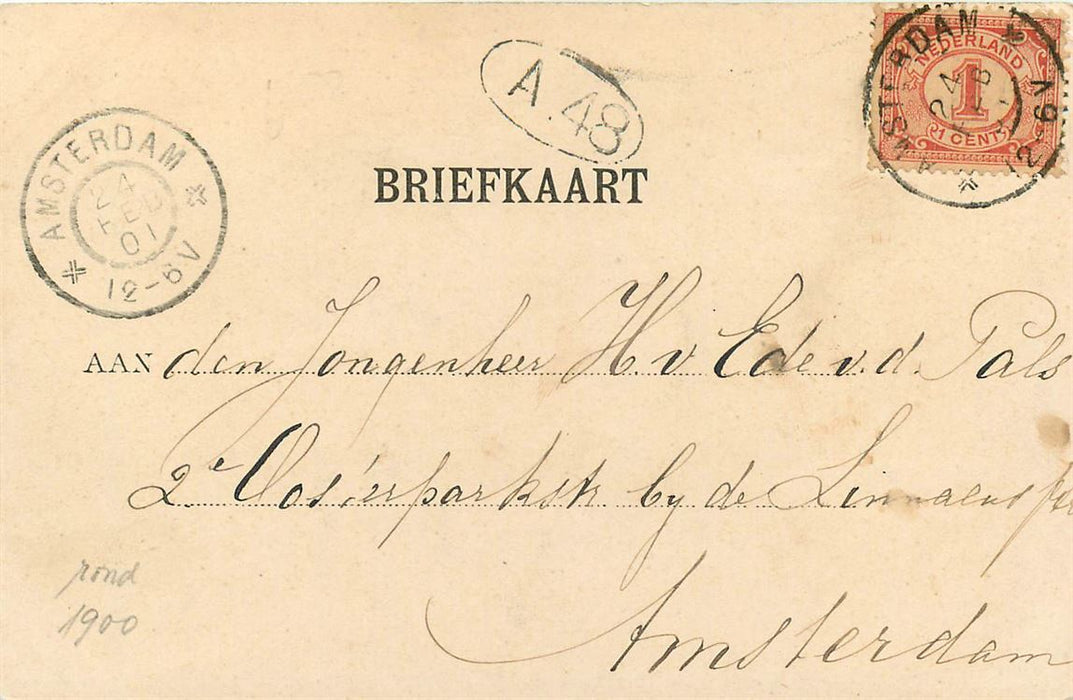 AMSTERDAM
24
FEB
01
12-6V
A.48
AMSTERDAM
24
12-6V
NEDERLAND
1
1 CENT
BRIEFKAART
AAN den Jongenheer H. v Ede v.d. Pals
2e Oosterparkstr by de Linnaeus
Amsterdam
rond
1900